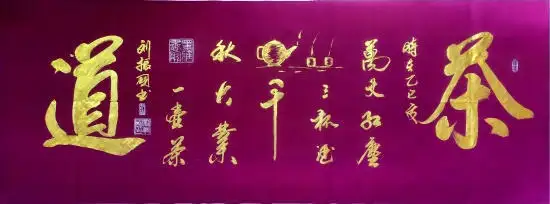 茶
時在乙巳夏
萬丈红塵
三杯酒
千
秋大業
一壺茶
刘振书
道